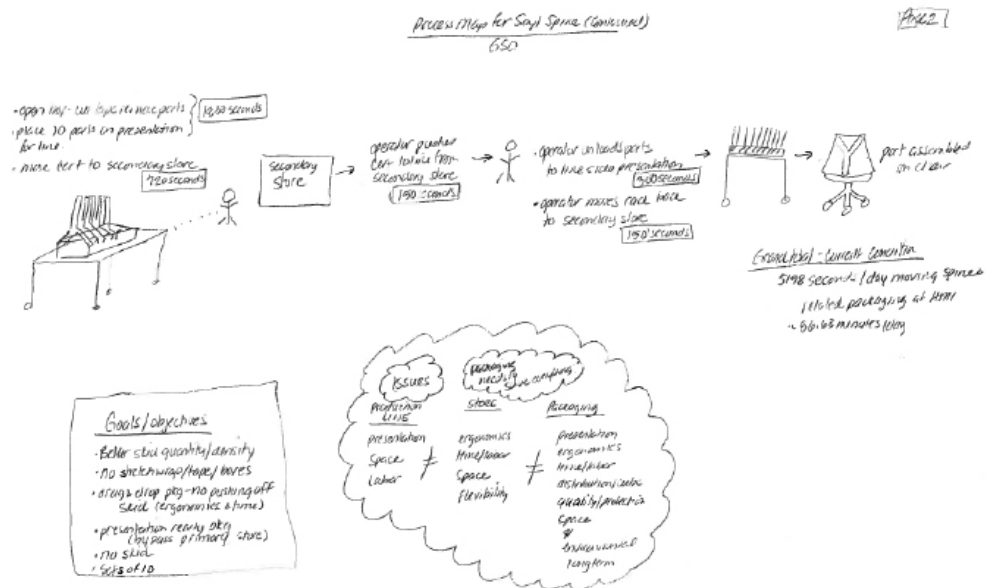 Process Maps for Sayl Spine (Continued)
GSO
Page 2
• open
parts
seconds
• place 10 parts on presentation
for line
• move cart to secondary store
720 seconds
secondary
store
operator pushes
cart to line from
secondary store
150 seconds
• operator unloads parts
to line side presentation
900 seconds
• operator moves rack back
to secondary store
150 seconds
part assembled
on chair
Grand total - Current Condition
5198 seconds/day moving spines
related packaging at HMI
86.63 minutes/day
Goals/objectives
• Better skid quantity/density
• no stretchwrap/tape/boxes
• drag & drop pkg - no pushing off
skid (ergonomics & time)
• presentation ready pkg
(bypass primary store)
• no skid
• sets of 10
Issues
production
LINE
presentation
Space
Labor
≠
packaging
needs to
solve everything
store
ergonomics
time/labor
Space
flexibility
≠
Packaging
presentation
ergonomics
time/labor
quality/protection
space
$
environmental
long term